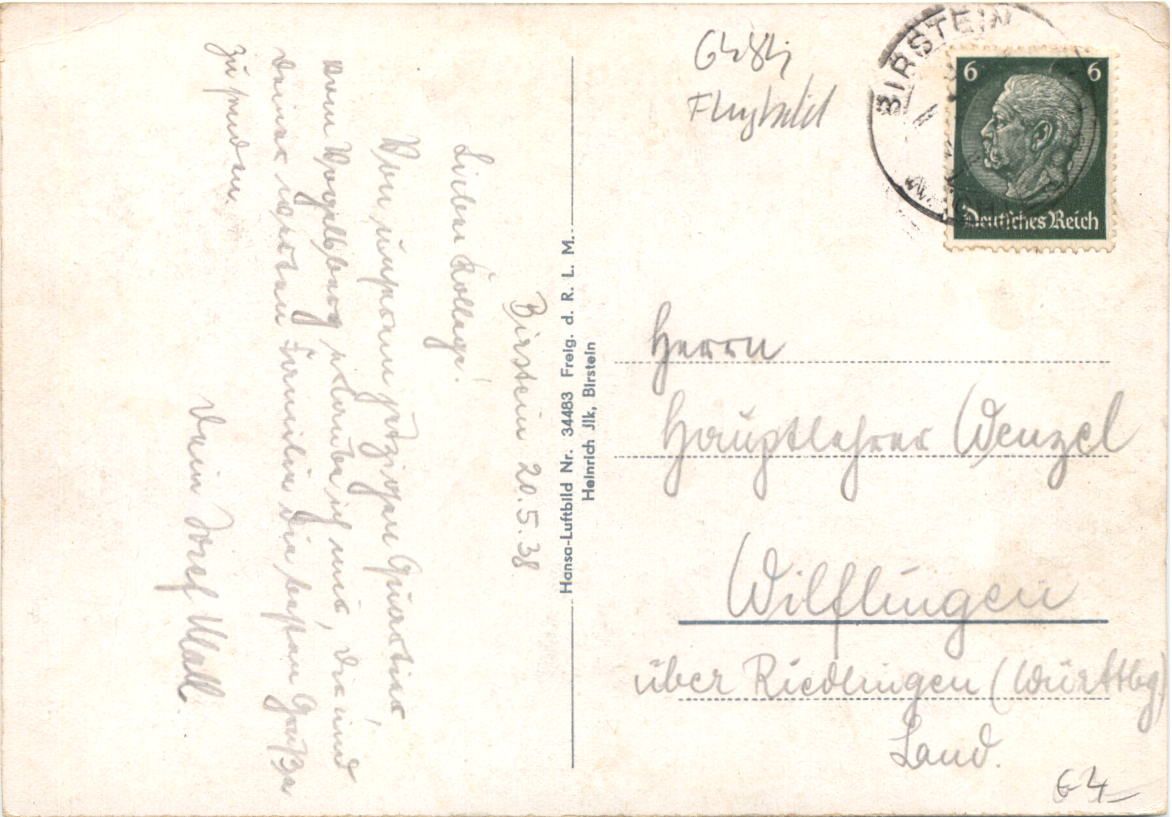 Birstein 20.5.38
Lieber Kollege!
Von unserem jetzigen Quartier,
dem Vogelsberg erlaube ich mir, dir und
deiner werten Familie die besten Grüße
zu senden.
Dein Josef
Hansa-Luftbild Nr. 34483 Freig. d. R. L. M.
Heinrich Jlk, Birstein
Flugbild
BIRSTEIN
6 6
Deutsches Reich
Herrn
Hauptlehrer Wenzel
Wilflingen
über Riedlingen (Württbg)
Land.
64